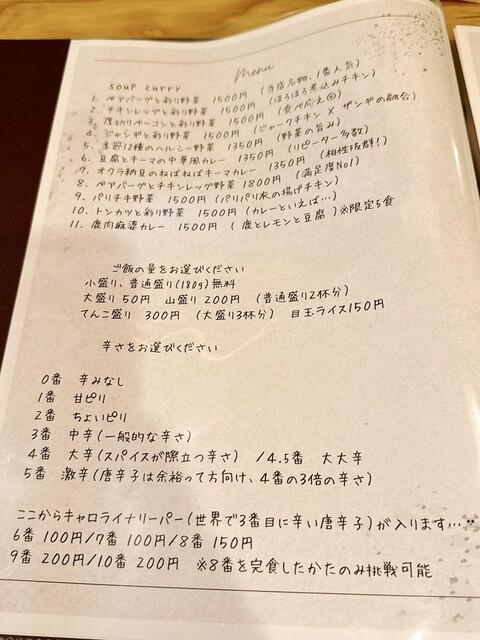 Menu
soup curry
1. ベアバーグと彩り野菜 1500円 (当店名物、1番人気)
2. チキンレッグと彩り野菜 1500円 (ほろほろ煮込みチキン)
3. 厚切りベーコンと彩り野菜 1500円 (食べ応え◎)
4. ジャンギと彩り野菜 1500円 (ジャークチキン × ザンギの融合)
5. 季節12種のヘルシー野菜 1350円 (野菜の旨み)
6. 豆腐とキーマの中華風カレー 1350円 (リピーター多数)
7. オクラ納豆のねばねばキーマカレー 1350円 (相性抜群!)
8. ベアバーグとチキンレッグ野菜 1800円 (満足度No1)
9. パリチキ野菜 1500円 (パリパリ衣の揚げチキン)
10. トンカツと彩り野菜 1500円 (カレーといえば…)
11. 鹿肉麻婆カレー 1500円 (鹿とレモンと豆腐) ※限定5食
ご飯の量をお選びください
小盛り、普通盛り(180g)無料
大盛り 50円 山盛り 200円 (普通盛り2杯分)
てんこ盛り 300円 (大盛り3杯分) 目玉ライス150円
辛さをお選びください
0番 辛みなし
1番 甘ピリ
2番 ちょいピリ
3番 中辛(一般的な辛さ)
4番 大辛(スパイスが際立つ辛さ) /4.5番 大大辛
5番 激辛(唐辛子は余裕って方向け、4番の3倍の辛さ)
ここからキャロライナリーパー(世界で3番目に辛い唐辛子)が入ります…
6番 100円/7番 100円/8番 150円
9番 200円/10番 200円 ※8番を完食したかたのみ挑戦可能